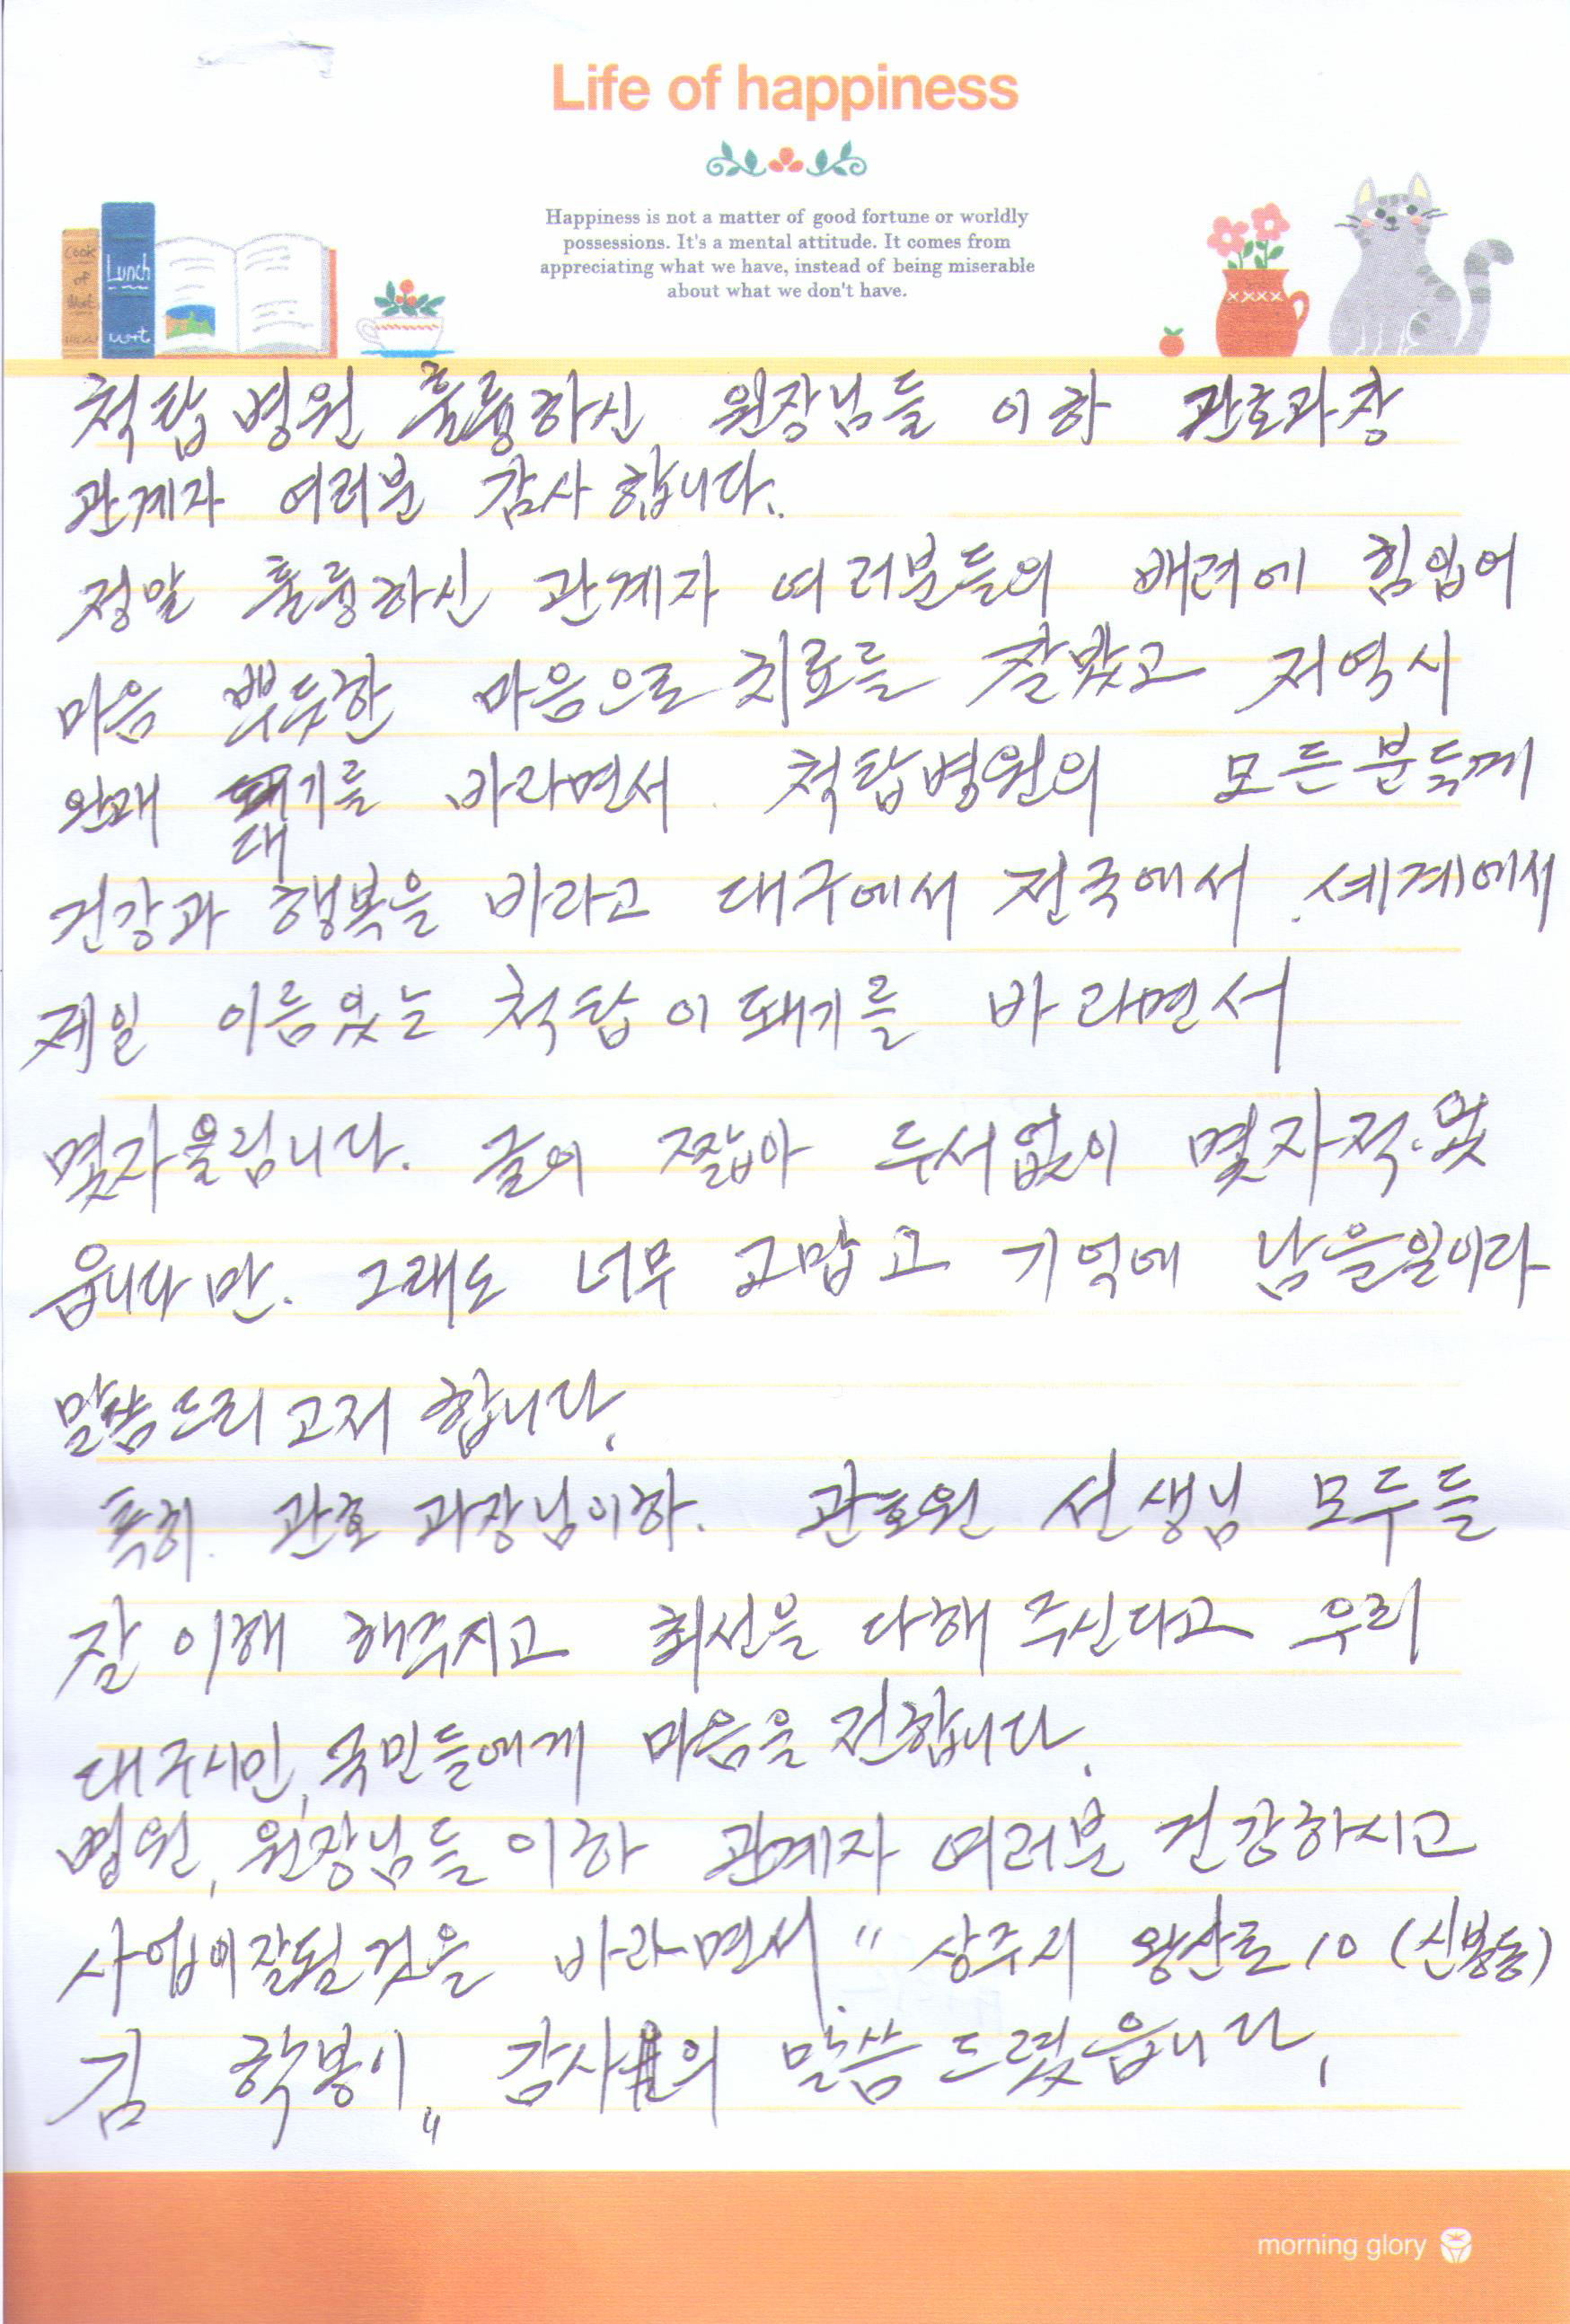 Life of happiness
Happiness is not a matter of good fortune or worldly
possessions. It's a mental attitude. It comes from
appreciating what we have, instead of being miserable
about what we don't have.
Cook
of
Lunch
척탑병원 훌륭하신 원장님들 이하 관호과장
관계자 여러분 감사합니다.
정말 훌륭하신 관계자 여러분들의 배려에 힘입어
마음 뿌듯한 마음으로 치료를 잘받고 저역시
완쾌 돼기를 바라면서 척탑병원의 모든분들께
건강과 행복을 바라고 대구에서 전국에서 세계에서
제일 이름있는 척탑이 돼기를 바라면서
몇자올림니다. 글이 짧아 두서없이 몇자적었
읍니다만. 그래도 너무 고맙고 기억에 남을일이라
말씀드리고저 합니다.
특히. 관호과장님이하. 관호원 선생님 모두들
잘 이해 해주시고 최선을 다해 주신다고 우리
대구시민, 국민들에게 마음을 전합니다.
병원, 원장님들 이하 관계자 여러분 건강하시고
사업이잘됨것을 바라면서. " 상주시 왕산로 10 (신봉동)
김 학봉이 " 감사의 말씀 드렸읍니다.
morning glory